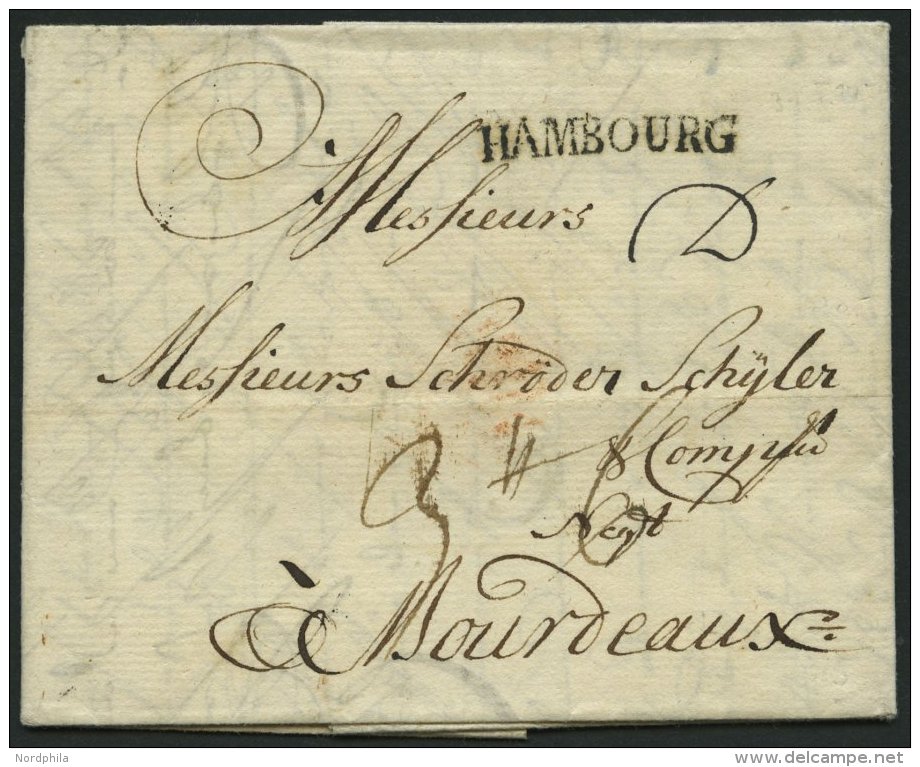 HAMBOURG
Messieurs D
Messieurs Schröder Schÿler
& Comp
Negt
à Bourdeaux
Nordphila
www.delcampe.net